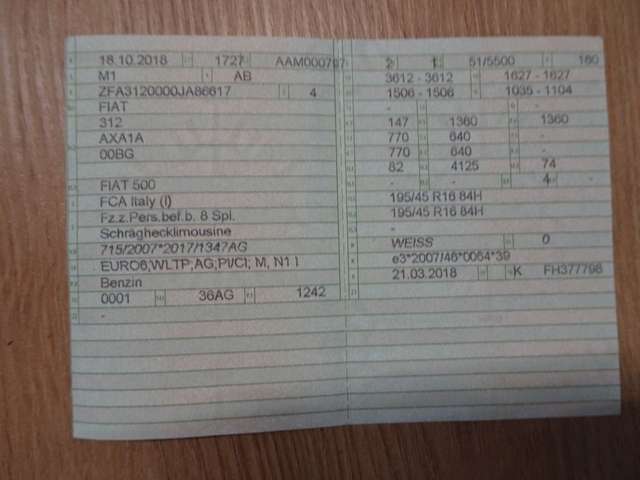 18.10.2018 1727 AAM000797
M1 AB
ZFA3120000JA86617 4
FIAT
312
AXA1A
00BG
FIAT 500
FCA Italy (I)
Fz.z.Pers.bef.b. 8 Spl.
Schrägheckliмousine
715/2007*2017/1347AG
EURO6;WLTP;AG;PI/CI; M, N1 I
Benzin
0001 36AG 1242
-
2 1 51/5500 160
3612 - 3612 1627 - 1627
1506 - 1506 1035 - 1104
- -
147 1360 1360
770 640 -
770 640 -
82 4125 74
- - 4 -
195/45 R16 84H
195/45 R16 84H
-
WEISS 0
e3*2007/46*0064*39
21.03.2018 K FH377798